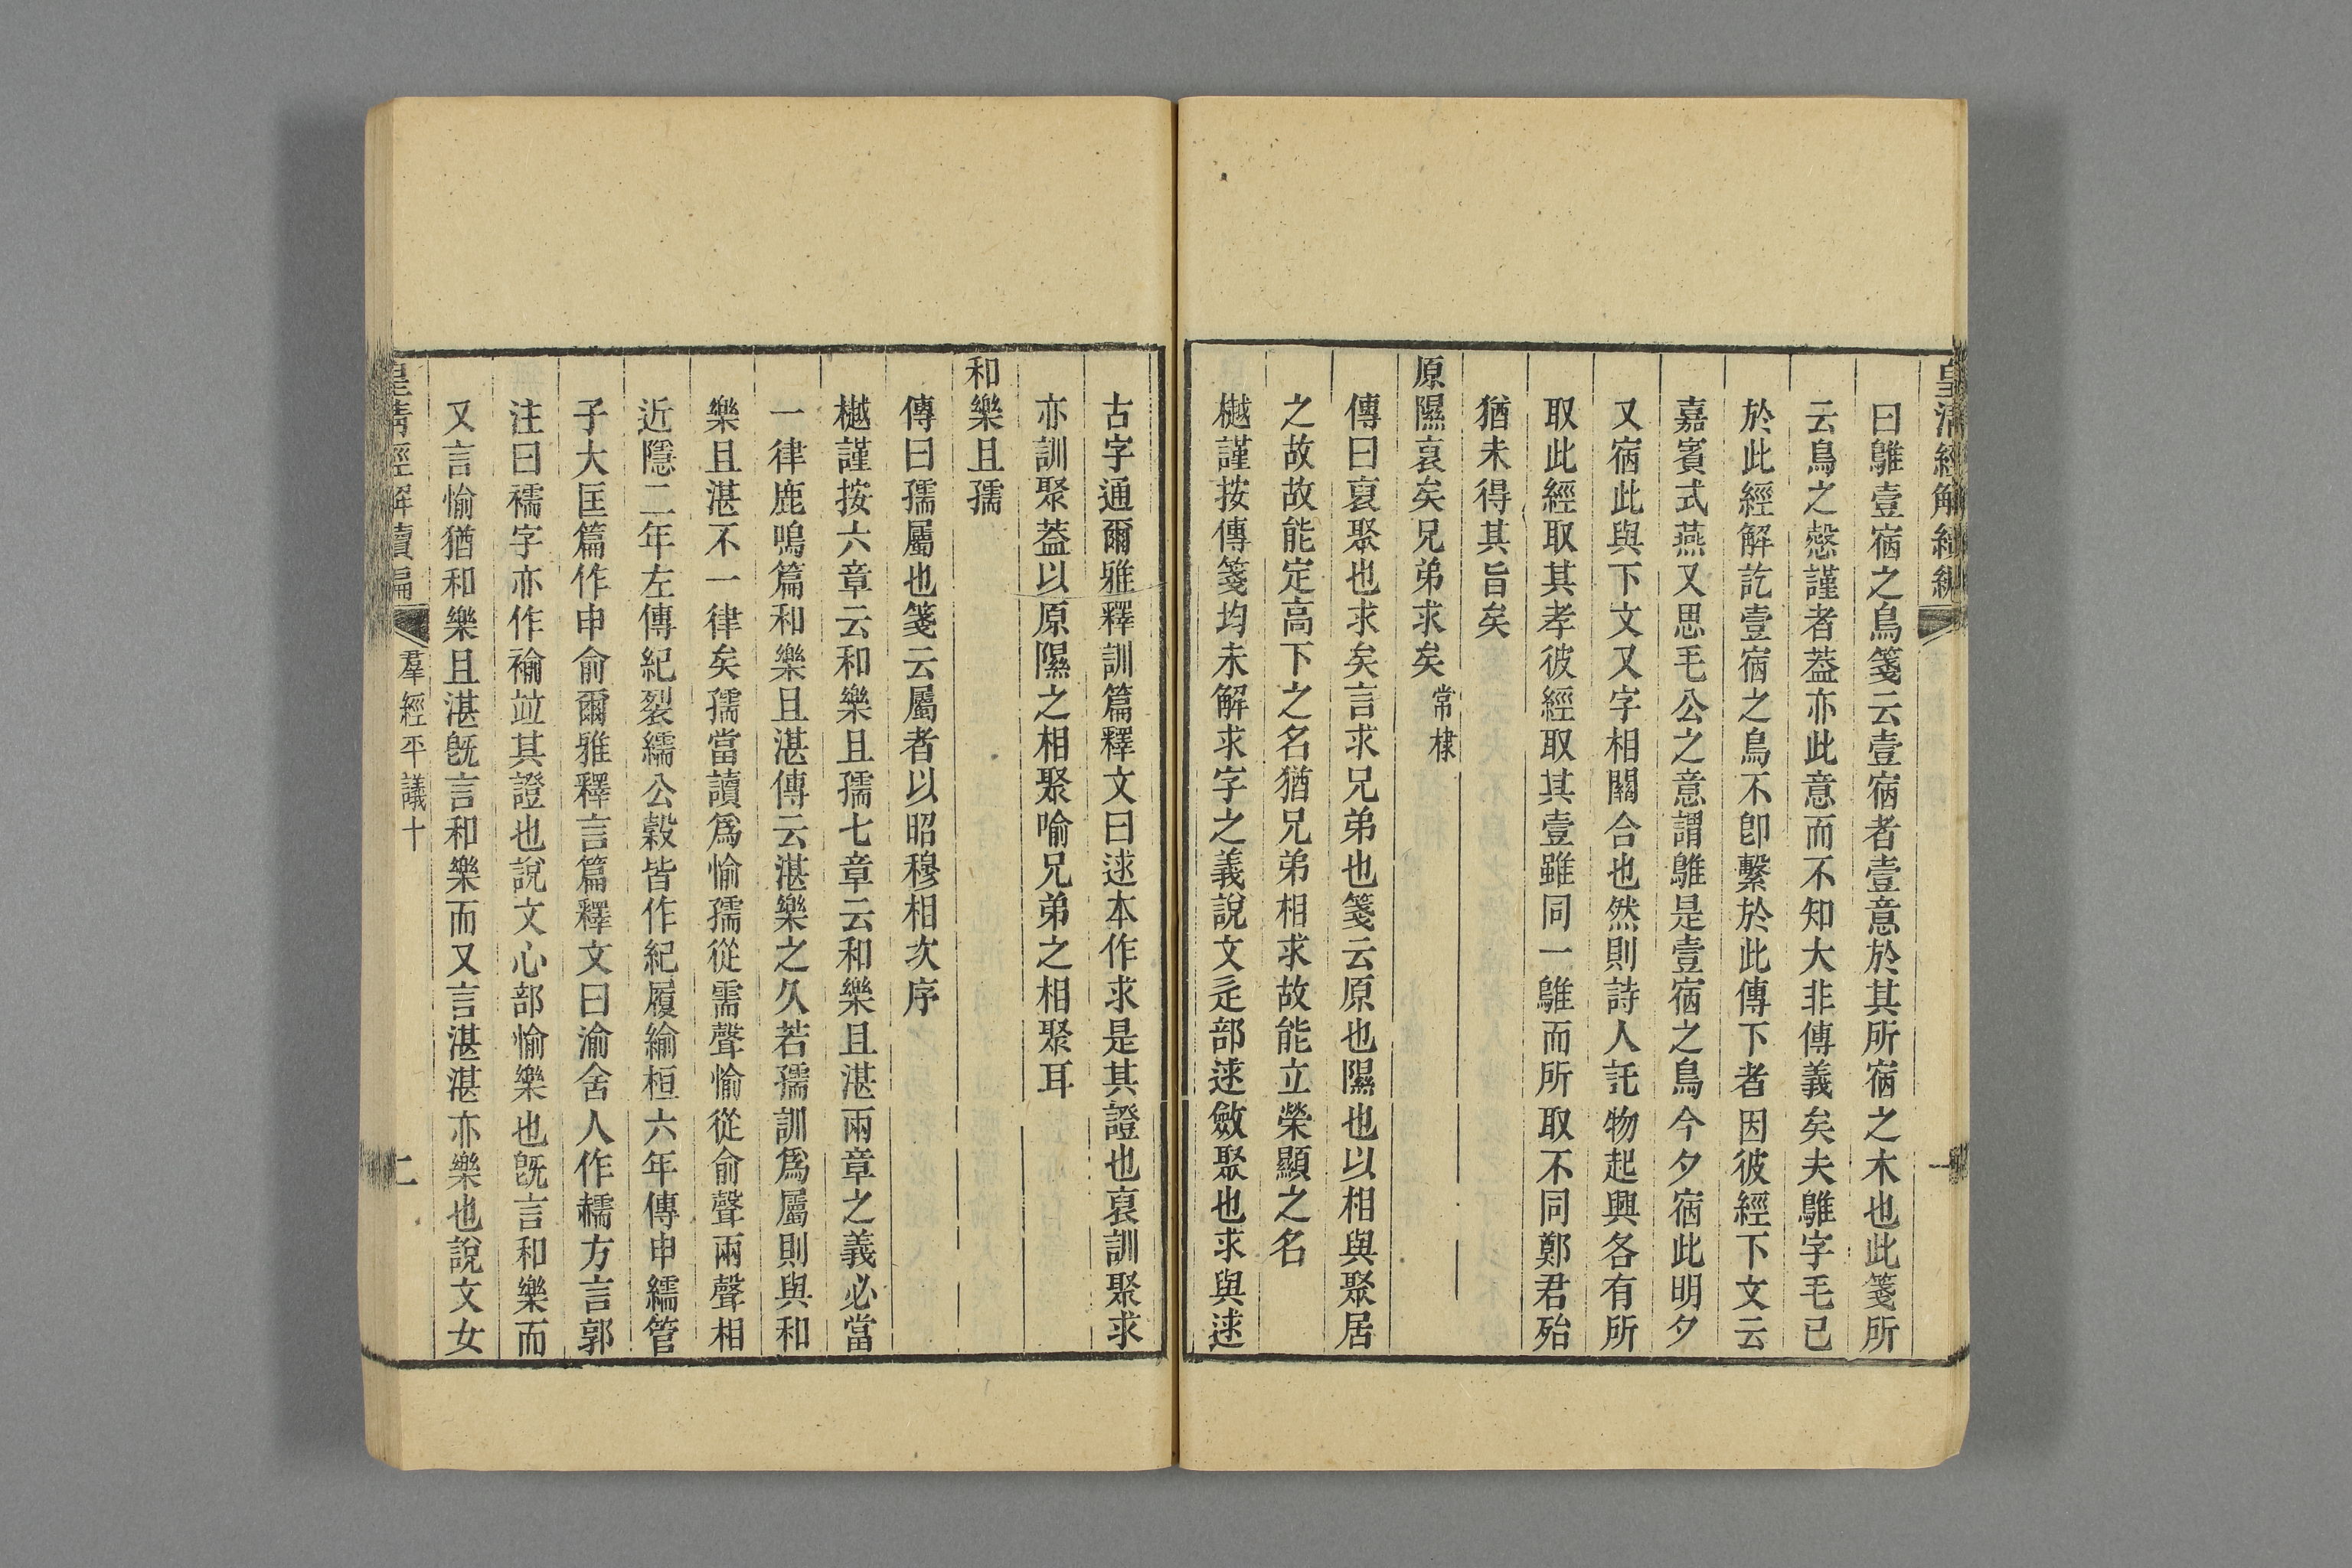 皇清經解續編
一
曰鵻壹宿之鳥箋云壹宿者壹意於其所宿之木也此箋所
云鳥之慤謹者葢亦此意而不知大非傳義矣夫鵻字毛已
於此經解訖壹宿之鳥不卽繫於此傳下者因彼經下文云
嘉賓式燕又思毛公之意謂鵻是壹宿之鳥今夕宿此明夕
又宿此與下文又字相關合也然則詩人託物起興各有所
取此經取其孝彼經取其壹雖同一鵻而所取不同鄭君殆
猶未得其旨矣
原隰裒矣兄弟求矣 常棣
傳曰裒聚也求矣言求兄弟也箋云原也隰也以相與聚居
之故故能定高下之名猶兄弟相求故能立榮顯之名
樾謹按傳箋均未解求字之義說文辵部逑斂聚也求與逑
古字通爾雅釋訓篇釋文曰逑本作求是其證也裒訓聚求
亦訓聚葢以原隰之相聚喻兄弟之相聚耳
和樂且孺
傳曰孺屬也箋云屬者以昭穆相次序
樾謹按六章云和樂且孺七章云和樂且湛兩章之義必當
一律鹿鳴篇和樂且湛傳云湛樂之久若孺訓爲屬則與和
樂且湛不一律矣孺當讀爲愉孺從需聲愉從俞聲兩聲相
近隱二年左傳紀裂繻公穀皆作紀履緰桓六年傳申繻管
子大匡篇作申俞爾雅釋言篇釋文曰渝舍人作繻方言郭
注曰襦字亦作褕竝其證也說文心部愉樂也旣言和樂而
又言愉猶和樂且湛旣言和樂而又言湛湛亦樂也說文女
皇清經解續編
羣經平議十
二